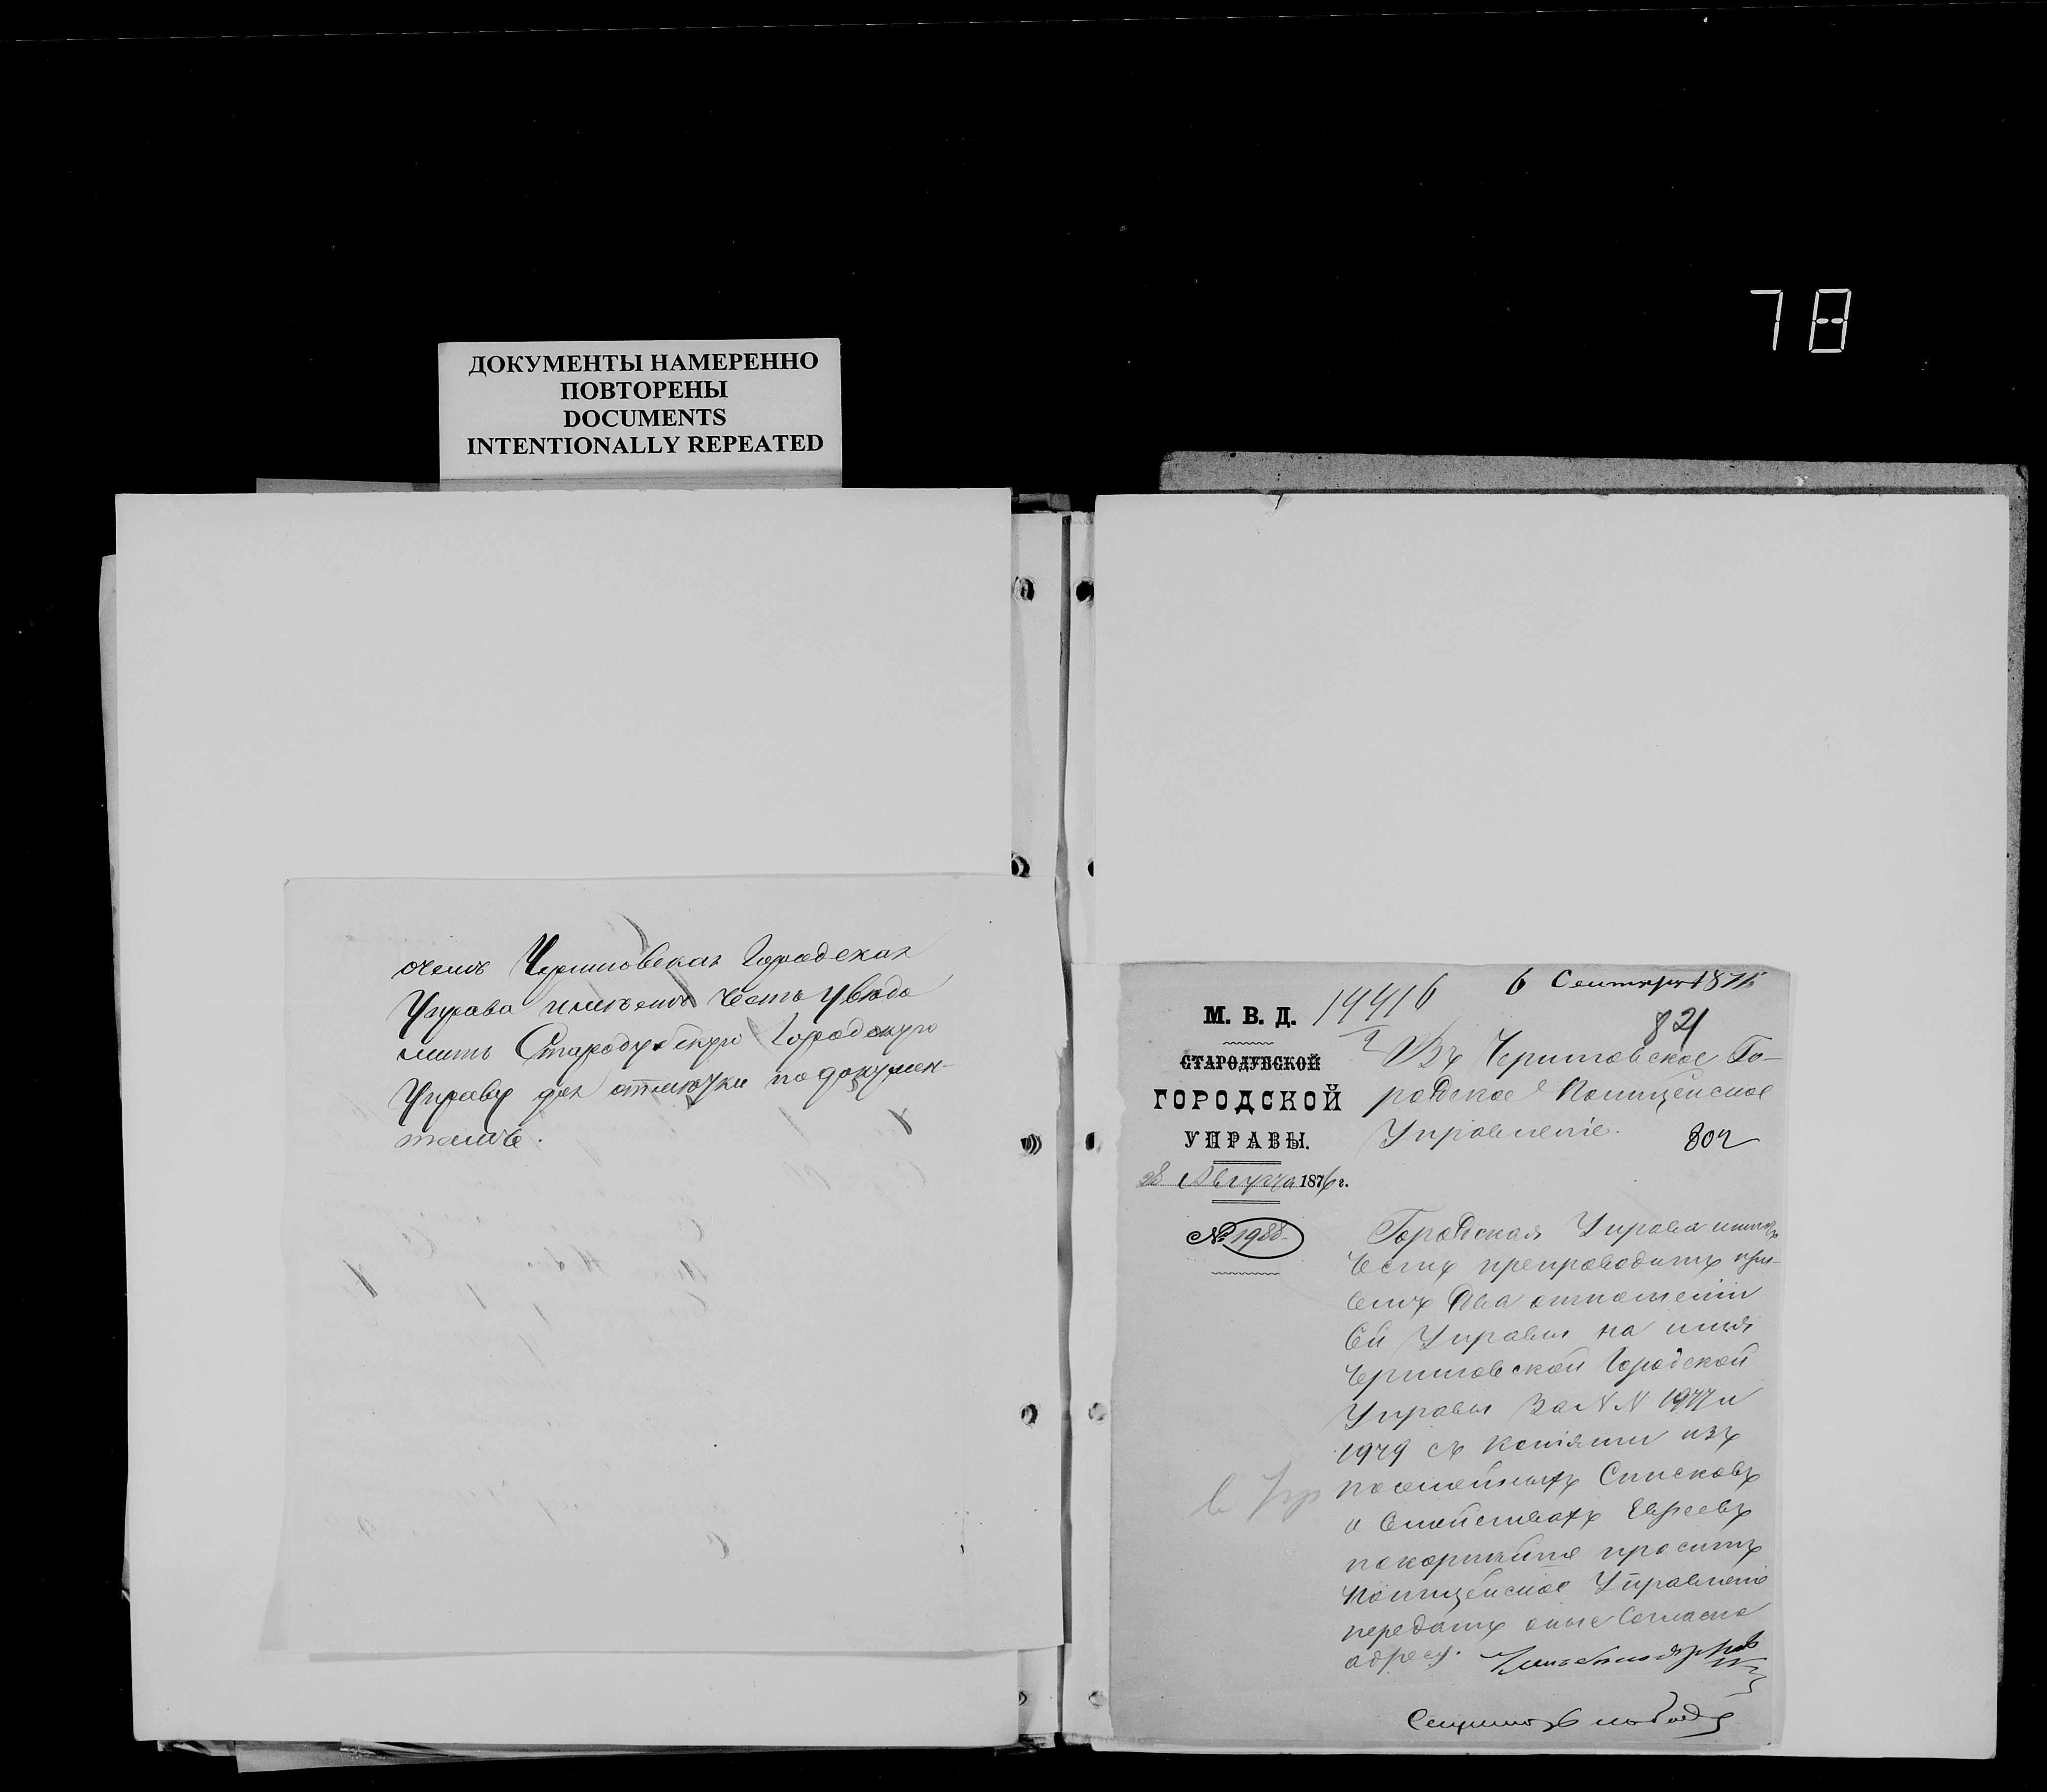 78
ДОКУМЕНТЫ НАМЕРЕННО
ПОВТОРЕНЫ
DOCUMENTS
INTENTIONALLY REPEATED
чемъ Черниговская Городская
Управа имѣетъ честь увѣдо
мить Стародубскую Городскую
Управу для отмѣтки по докумен-
тамъ.
14416 6 Сентября 187
М. В. Д.
82
СТАРОДУБСКОЙ
ГОРОДСКОЙ
УПРАВЫ.
28 Августа 1876 г.
№ 1988
Въ Черниговское Го-
родское Полицейское
Управленіе.
Городская Управа имѣетъ
честь препроводить при
семъ два отношенія
сей Управы на имя
Черниговской Городской
Управы за №№ 1977 и
1979 съ копіями изъ
посемейныхъ списковъ
о семействахъ Евреевъ
покорнѣйше проситъ
Полицейское Управленіе
передать оные согласно
адресу.